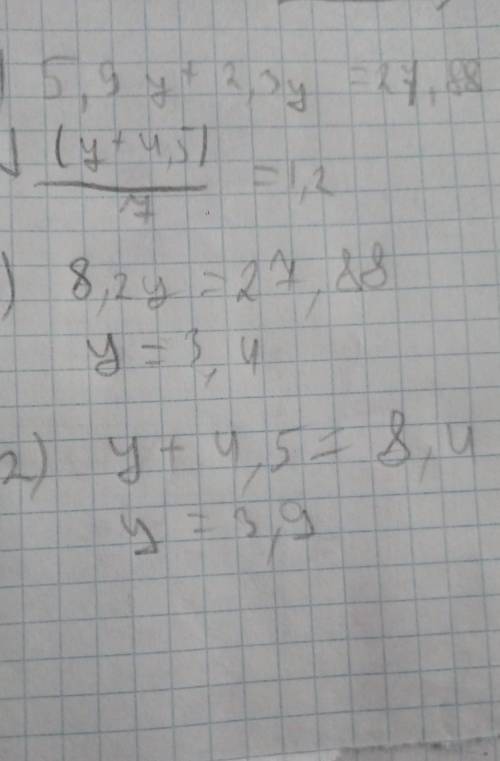 ) 5,9 y + 2,3y = 27,88
) (y + 4,5)
7
= 1,2
) 8,2y = 27,88
y = 3,4
2) y + 4,5 = 8,4
y = 3,9